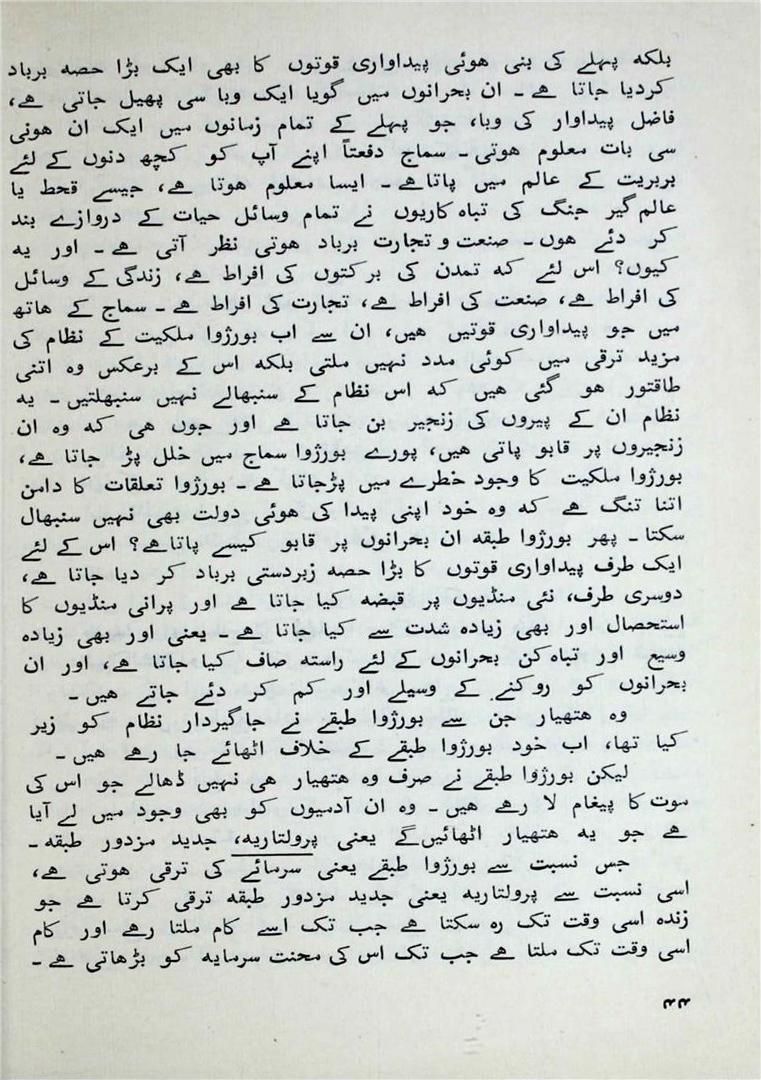 بلکہ پہلے کی بنی ہوئی پیداواری قوتوں کا بھی ایک بڑا حصہ برباد
کردیا جاتا ہے ۔ ان بحرانوں میں گویا ایک وبا سی پھیل جاتی ہے،
فاضل پیداوار کی وبا، جو پہلے کے تمام زمانوں میں ایک ان ہونی
سی بات معلوم ہوتی ۔ سماج دفعتاً اپنے آپ کو کچھ دنوں کے لئے
بربریت کے عالم میں پاتاہے ۔ ایسا معلوم ہوتا ہے، جیسے قحط یا
عالم گیر جنگ کی تباہ کاریوں نے تمام وسائل حیات کے دروازے بند
کر دئے ہوں ۔ صنعت و تجارت برباد ہوتی نظر آتی ہے ۔ اور یہ
کیوں؟ اس لئے کہ تمدن کی برکتوں کی افراط ہے، زندگی کے وسائل
کی افراط ہے، صنعت کی افراط ہے، تجارت کی افراط ہے ۔ سماج کے ہاتھ
میں جو پیداواری قوتیں ہیں، ان سے اب بورژوا ملکیت کے نظام کی
مزید ترقی میں کوئی مدد نہیں ملتی بلکہ اس کے برعکس وہ اتنی
طاقتور ہو گئی ہیں کہ اس نظام کے سنبھالے نہیں سنبھلتیں ۔ یہ
نظام ان کے پیروں کی زنجیر بن جاتا ہے اور جوں ہی کہ وہ ان
زنجیروں پر قابو پاتی ہیں، پورے بورژوا سماج میں خلل پڑ جاتا ہے،
بورژوا ملکیت کا وجود خطرے میں پڑجاتا ہے ۔ بورژوا تعلقات کا دامن
اتنا تنگ ہے کہ وہ خود اپنی پیدا کی ہوئی دولت بھی نہیں سنبھال
سکتا ۔ پھر بورژوا طبقہ ان بحرانوں پر قابو کیسے پاتاہے؟ اس کے لئے
ایک طرف پیداواری قوتوں کا بڑا حصہ زبردستی برباد کر دیا جاتا ہے،
دوسری طرف، نئی منڈیوں پر قبضہ کیا جاتا ہے اور پرانی منڈیوں کا
استحصال اور بھی زیادہ شدت سے کیا جاتا ہے ۔ یعنی اور بھی زیادہ
وسیع اور تباہ کن بحرانوں کے لئے راستہ صاف کیا جاتا ہے، اور ان
بحرانوں کو روکنے کے وسیلے اور کم کر دئے جاتے ہیں ۔
وہ ہتھیار جن سے بورژوا طبقے نے جاگیردار نظام کو زیر
کیا تھا، اب خود بورژوا طبقے کے خلاف اٹھائے جا رہے ہیں ۔
لیکن بورژوا طبقے نے صرف وہ ہتھیار ہی نہیں ڈھالے جو اس کی
موت کا پیغام لا رہے ہیں ۔ وہ ان آدمیوں کو بھی وجود میں لے آیا
ہے جو یہ ہتھیار اٹھائیں گے یعنی پرولتاریہ، جدید مزدور طبقہ ۔
جس نسبت سے بورژوا طبقے یعنی سرمائے کی ترقی ہوتی ہے،
اسی نسبت سے پرولتاریہ یعنی جدید مزدور طبقہ ترقی کرتا ہے جو
زندہ اسی وقت تک رہ سکتا ہے جب تک اسے کام ملتا رہے اور کام
اسی وقت تک ملتا ہے جب تک اس کی محنت سرمایہ کو بڑھاتی ہے ۔